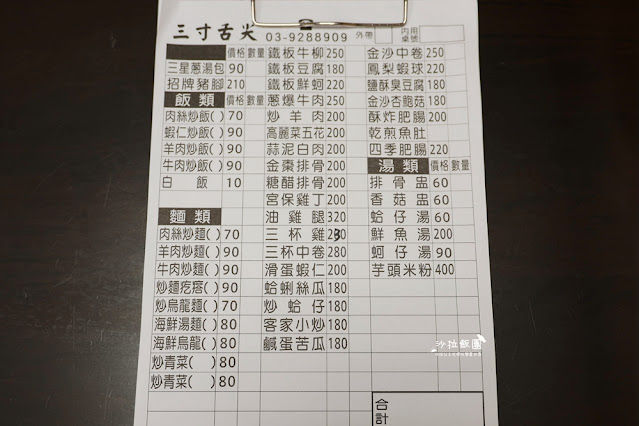 三寸舌尖 03-9288909 外帶 內用 桌號
價格 數量
三星蔥湯包 90
招牌豬腳 210
飯類 價格 數量
肉絲炒飯( ) 70
蝦仁炒飯( ) 90
羊肉炒飯( ) 90
牛肉炒飯( ) 90
白飯 10
麵類
肉絲炒麵( ) 70
羊肉炒麵( ) 90
牛肉炒麵( ) 90
炒麵疙瘩( ) 90
炒烏龍麵( ) 70
海鮮湯麵( ) 80
海鮮烏龍( ) 80
炒青菜( ) 80
炒青菜( ) 80
鐵板牛柳 250
鐵板豆腐 180
鐵板鮮蚵 220
蔥爆牛肉 250
炒羊肉 200
高麗菜五花 200
蒜泥白肉 200
金棗排骨 200
糖醋排骨 200
宮保雞丁 200
油雞腿 320
三杯雞
三杯中卷 280
滑蛋蝦仁 200
蛤蜊絲瓜 180
炒蛤仔 180
客家小炒 180
鹹蛋苦瓜 180
金沙中卷 250
鳳梨蝦球 220
鹽酥臭豆腐 180
金沙杏鮑菇 180
酥炸肥腸 200
乾煎魚肚
四季肥腸 220
湯類 價格 數量
排骨盅 60
香菇盅 60
蛤仔湯 60
鮮魚湯 200
蚵仔湯 90
芋頭米粉 400
合計
沙拉飯團